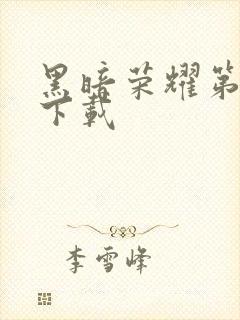 黑暗荣耀第
下载
李雪峰